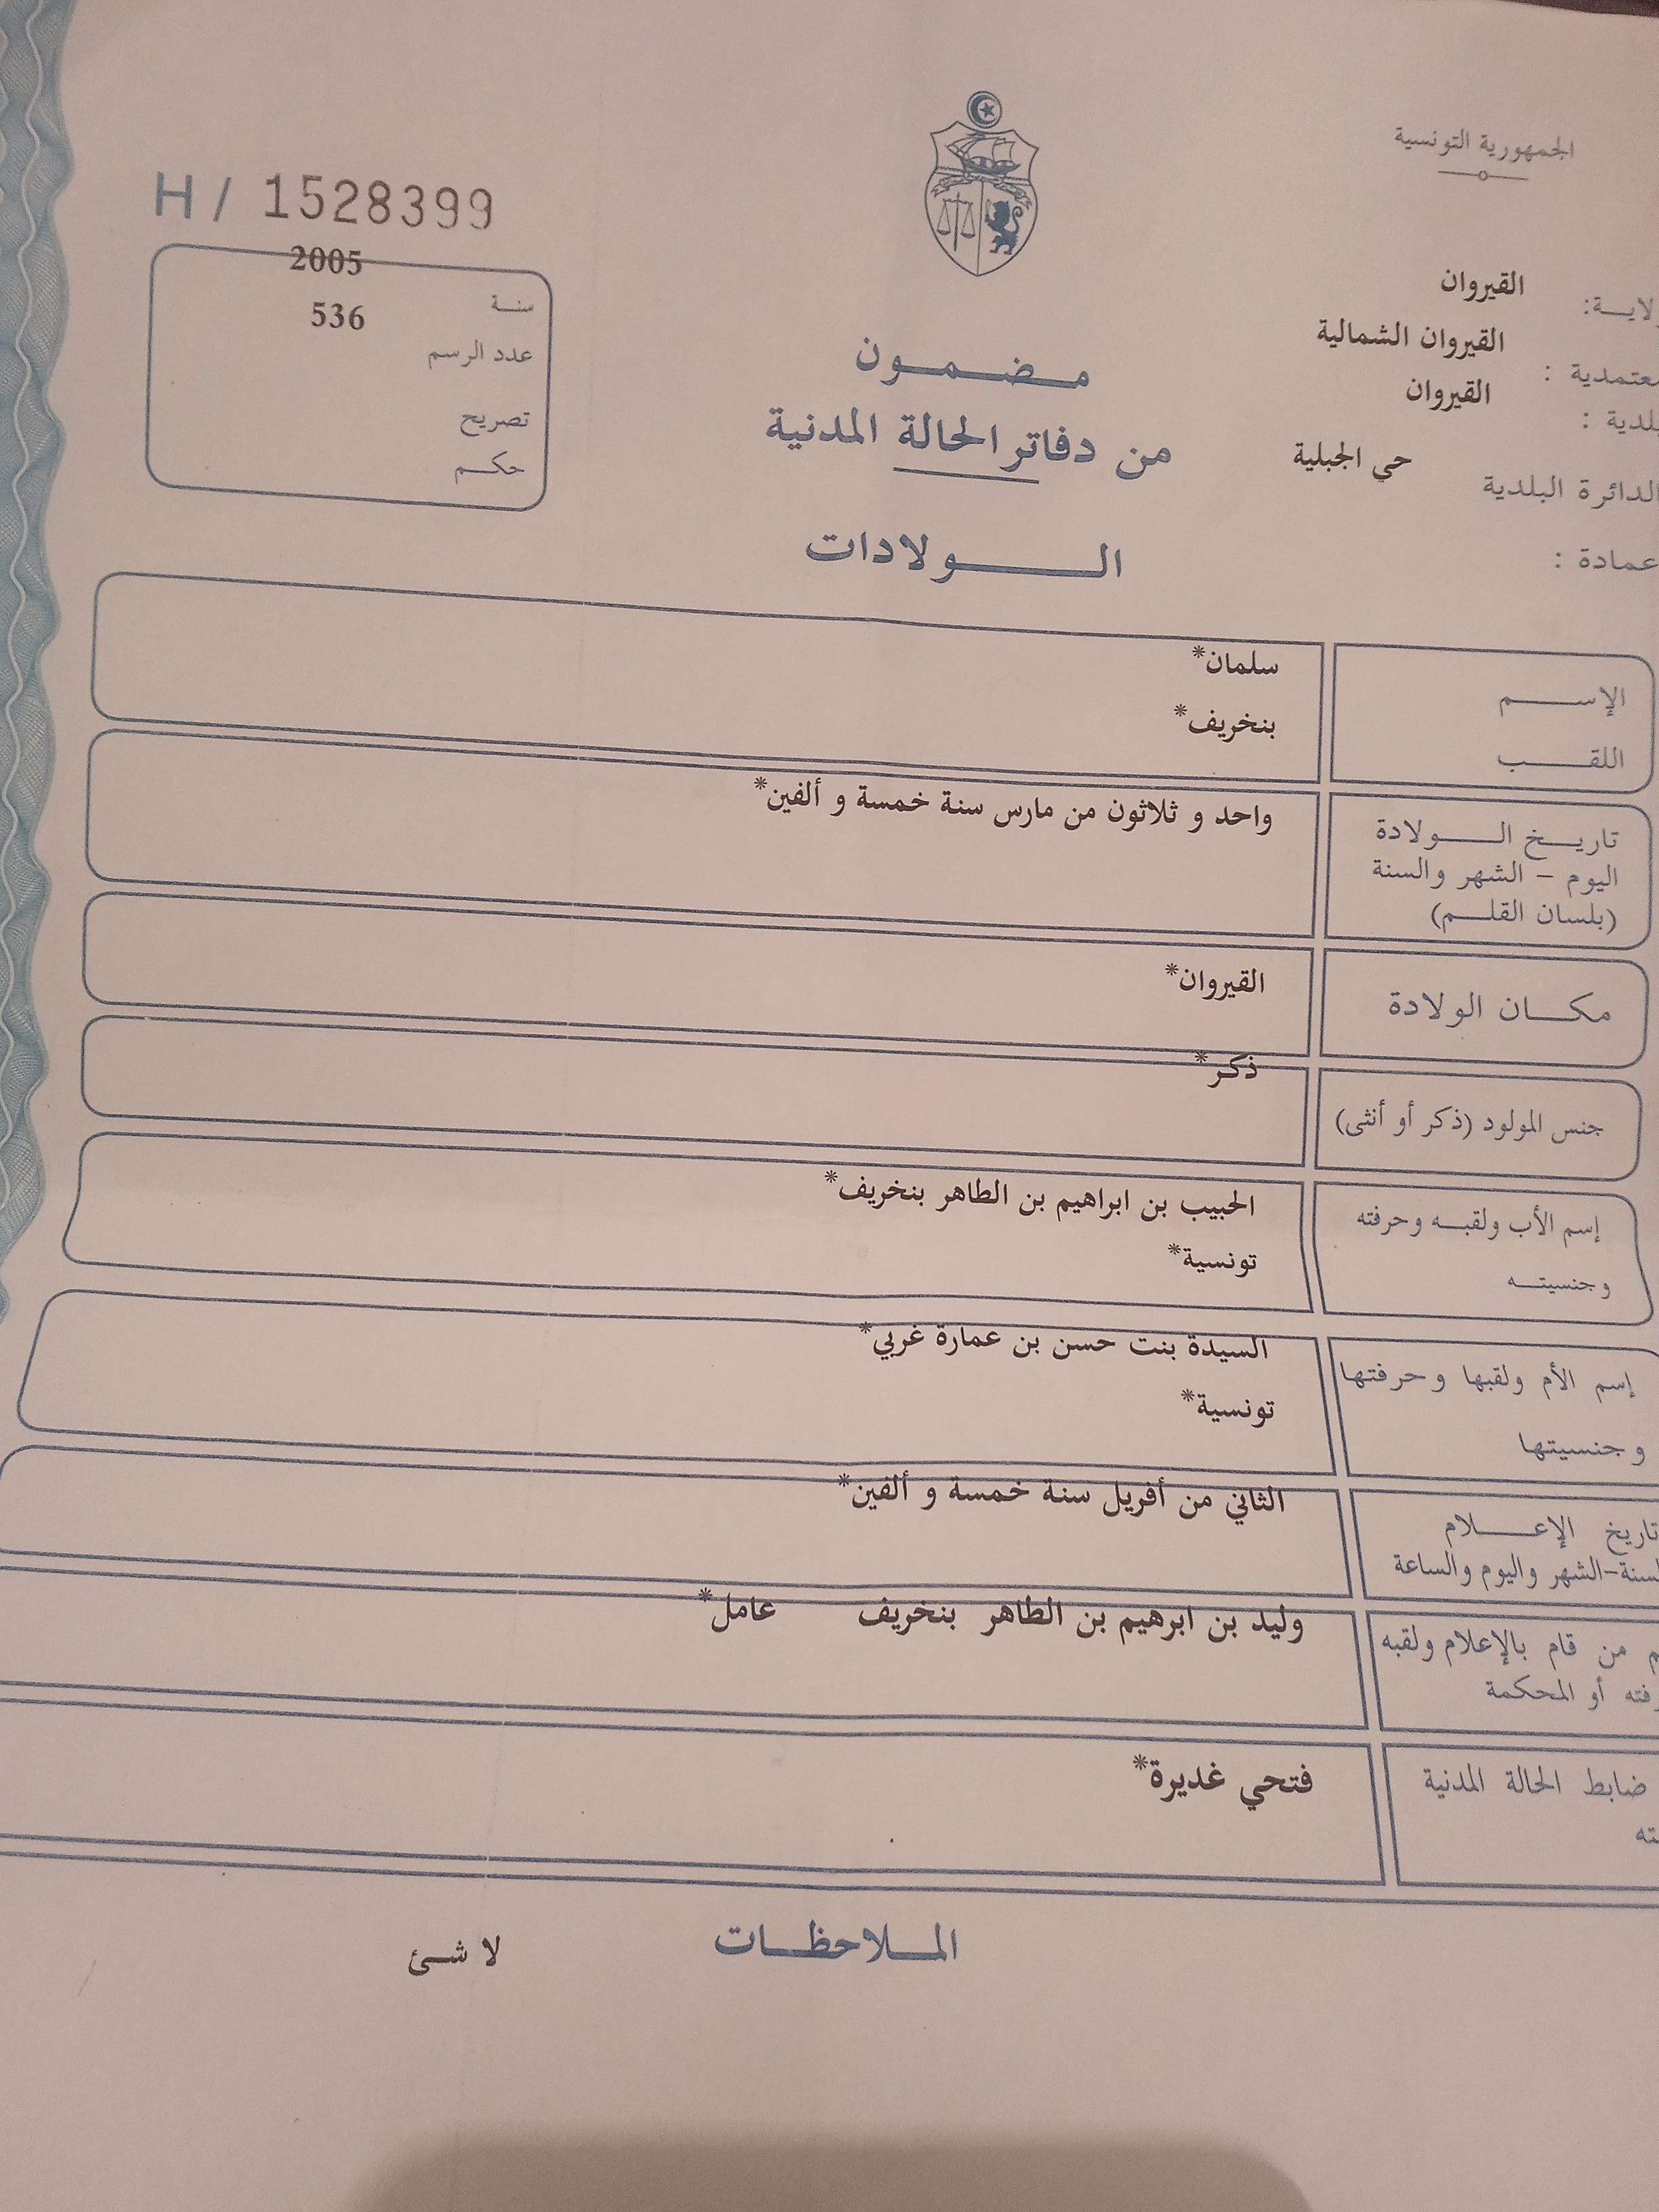 الجمهورية التونسية
H / 1528399
2005
سنة
536
عدد الرسم
تصريح
حكم
القيروان
معتمدية : القيروان الشمالية
القيروان
الدائرة البلدية حي الجبلية
عمادة :
مضمون
من دفاتر الحالة المدنية
الولادات
الإسم سلمان*
اللقب بنخريف*
تاريخ الولادة واحد و ثلاثون من مارس سنة خمسة و ألفين*
اليوم – الشهر والسنة
(بلسان القلم)
مكان الولادة القيروان*
جنس المولود (ذكر أو أنثى) ذكر*
إسم الأب ولقبه وحرفته الحبيب بن ابراهيم بن الطاهر بنخريف*
وجنسيته تونسية*
إسم الأم ولقبها وحرفتها السيدة بنت حسن بن عمارة غربي*
وجنسيتها تونسية*
تاريخ الإعلام الثاني من أفريل سنة خمسة و ألفين*
السنة-الشهر واليوم والساعة
من قام بالإعلام ولقبه وليد بن ابرهيم بن الطاهر بنخريف عامل*
أو المحكمة
ضابط الحالة المدنية فتحي غديرة*
الملاحظات
لا شئ